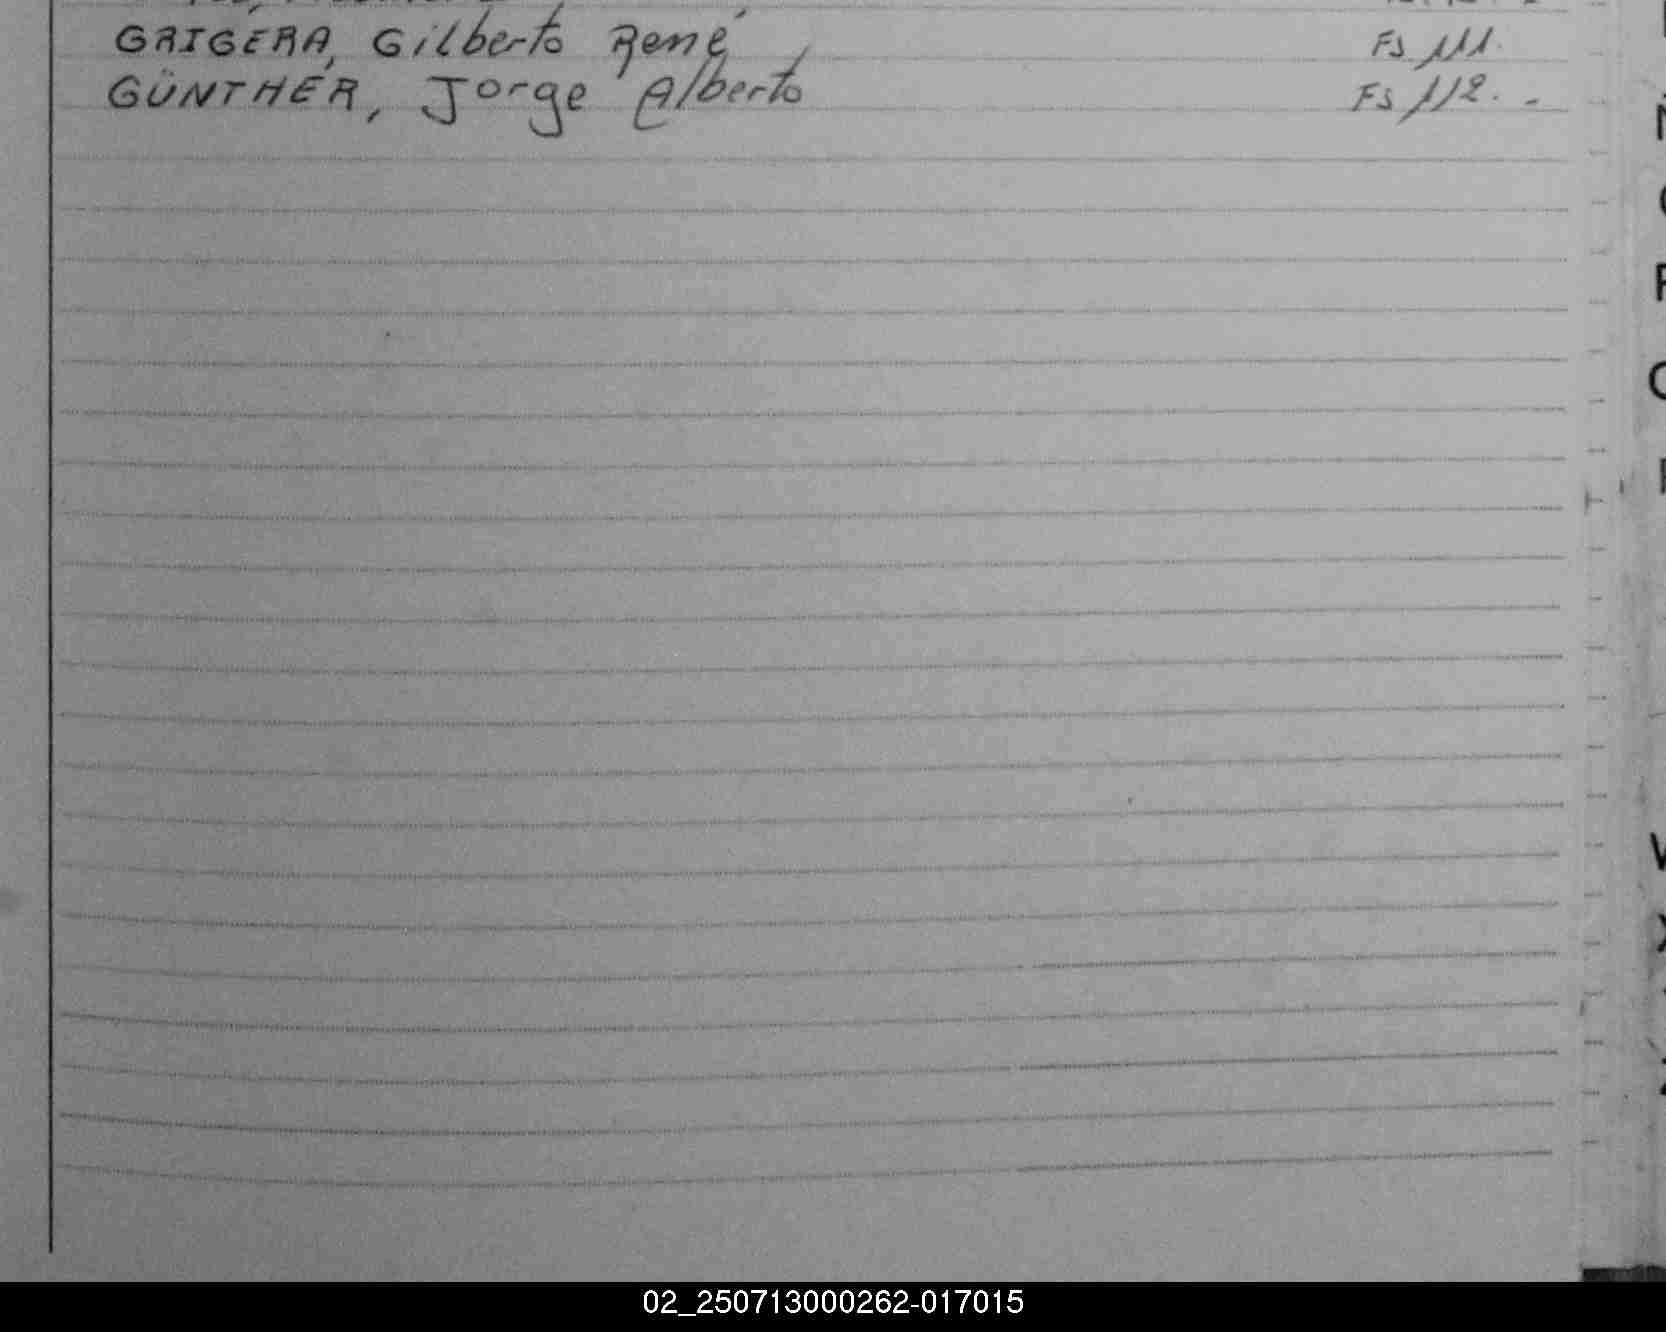 GRIGERA, Gilberto René FS 111.
GÜNTHER, Jorge Alberto FS 112. -
02_250713000262-017015